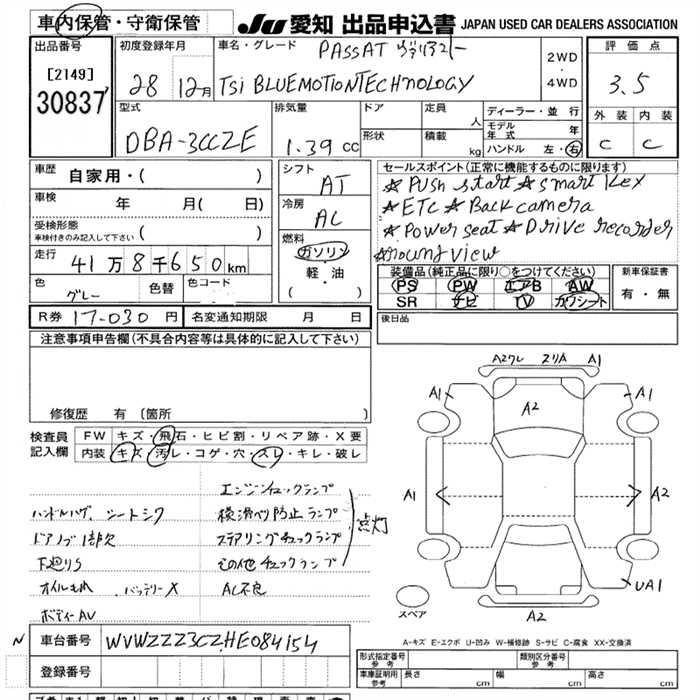 車内保管・守衛保管
JU 愛知 出品申込書 JAPAN USED CAR DEALERS ASSOCIATION
出品番号
[2149]
30837
初度登録年月
28 12月
車名・グレード PASSAT ヴァリアント
TSi BLUEMOTIONTECHNOLOGY
2WD
・
4WD
評価点
3.5
外装 内装
C C
型式
DBA-3CCZE
排気量
1.39 cc
ドア 定員 人
形状 積載 kg
ディーラー・並行
モデル年式 年
ハンドル 左・右
車歴 自家用・( )
車検 年 月( 日)
受検形態
車検付きのみ記入して下さい ( )
走行 41万8千650km
色 グレー 色替 色コード
シフト AT
冷房 AC
燃料 ガソリン
・
軽・油
( )
セールスポイント(正常に機能するものに限ります)
☆ Push start ☆ smart Key
☆ ETC ☆ Back camera
☆ Power seat ☆ Drive recorder
☆round view
装備品(純正品に限り○をつけてください)
PS PW エアB AW
SR ナビ TV カワシート
新車保証書
有・無
R券 17-030円 名変通知期限 月 日
後日品
注意事項申告欄(不具合内容等は具体的に記入して下さい)
修復歴 有 (箇所 )
検査員
記入欄
FW キズ・飛石・ヒビ割・リペア跡・X要
内装 キズ・汚レ・コゲ・穴・スレ・キレ・破レ
エンジンチェックランプ
ハンドルハゲ、シートシワ 横滑べり防止ランプ 点灯
ドアノブ1部欠 ステアリングチェックランプ
下廻りS その他チェックランプ
オイルもれ バッテリーX AC不良
ボディーAV
A2ワレ A1
A1 A2 A1
A1 A2
UA1
A2
スペア
A-キズ E-エクボ U-凹み W-補修跡 S-サビ C-腐食 XX-交換済
N 車台番号 WVWZZZ3CZHE084154
登録番号
形式指定番号 参考 類別区分番号 参考
車庫証明用 参考 長さ cm 幅 cm 高さ cm